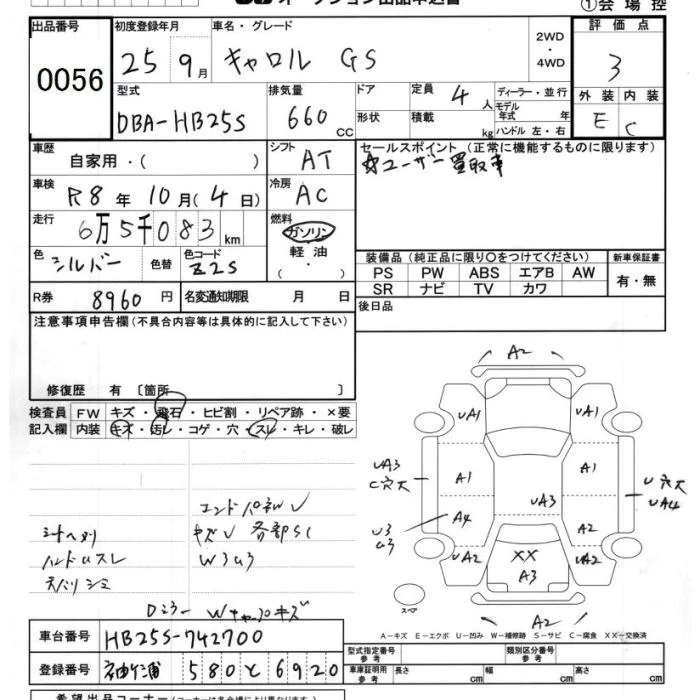 オークション出品申込書
①会場控
出品番号 初度登録年月 車名・グレード 評価点
0056 25 9月 キャロル GS 2WD・4WD 3
型式 排気量 ドア 定員 ディーラー・並行 外装 内装
DBA-HB25S 660 CC 形状 積載 4人 kg モデル年式 年 ハンドル 左・右 E C
車歴 自家用・( ) シフト AT セールスポイント (正常に機能するものに限ります)
☆ユーザー買取車
車検 R8年10月(4日) 冷房 AC
走行 6万5千083km 燃料 ガソリン 軽油・( )
色 シルバー 色替 色コード Z2S
装備品 (純正品に限り○をつけてください) 新車保証書
PS PW ABS エアB AW 有・無
SR ナビ TV カワ
R券 8960円 名変通知期限 月 日 後日品
注意事項申告欄(不具合内容等は具体的に記入して下さい)
修復歴 有 〔箇所 〕
検査員 FW キズ・飛石・ヒビ割・リペア跡・×要
記入欄 内装 キズ・汚レ・コゲ・穴・スレ・キレ・破レ
A2
UA1 UA1
UA3 C穴大 A1 A1 U穴大 UA4
UA3
U3 A4 A2
UA2 XX UA2
A3
A2
スペア
エンドパネルU
シートヘタリ キズU 各部SC
ハンドルスレ W3U3
天バリシミ
Dミラー Wキャップキズ
A-キズ E-エクボ U-凹み W-補修跡 S-サビ C-腐食 XX-交換済
車台番号 HB25S-742700
登録番号 袖ケ浦 580 と 6920
型式指定番号 参考 類別区分番号 参考
車庫証明用 参考 長さ cm 幅 cm 高さ cm
希望出品コーナー